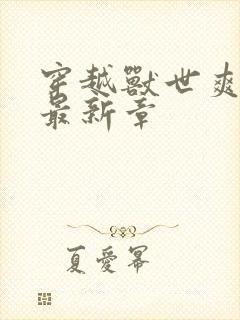 穿越獸世爽
最新章
夏愛幂